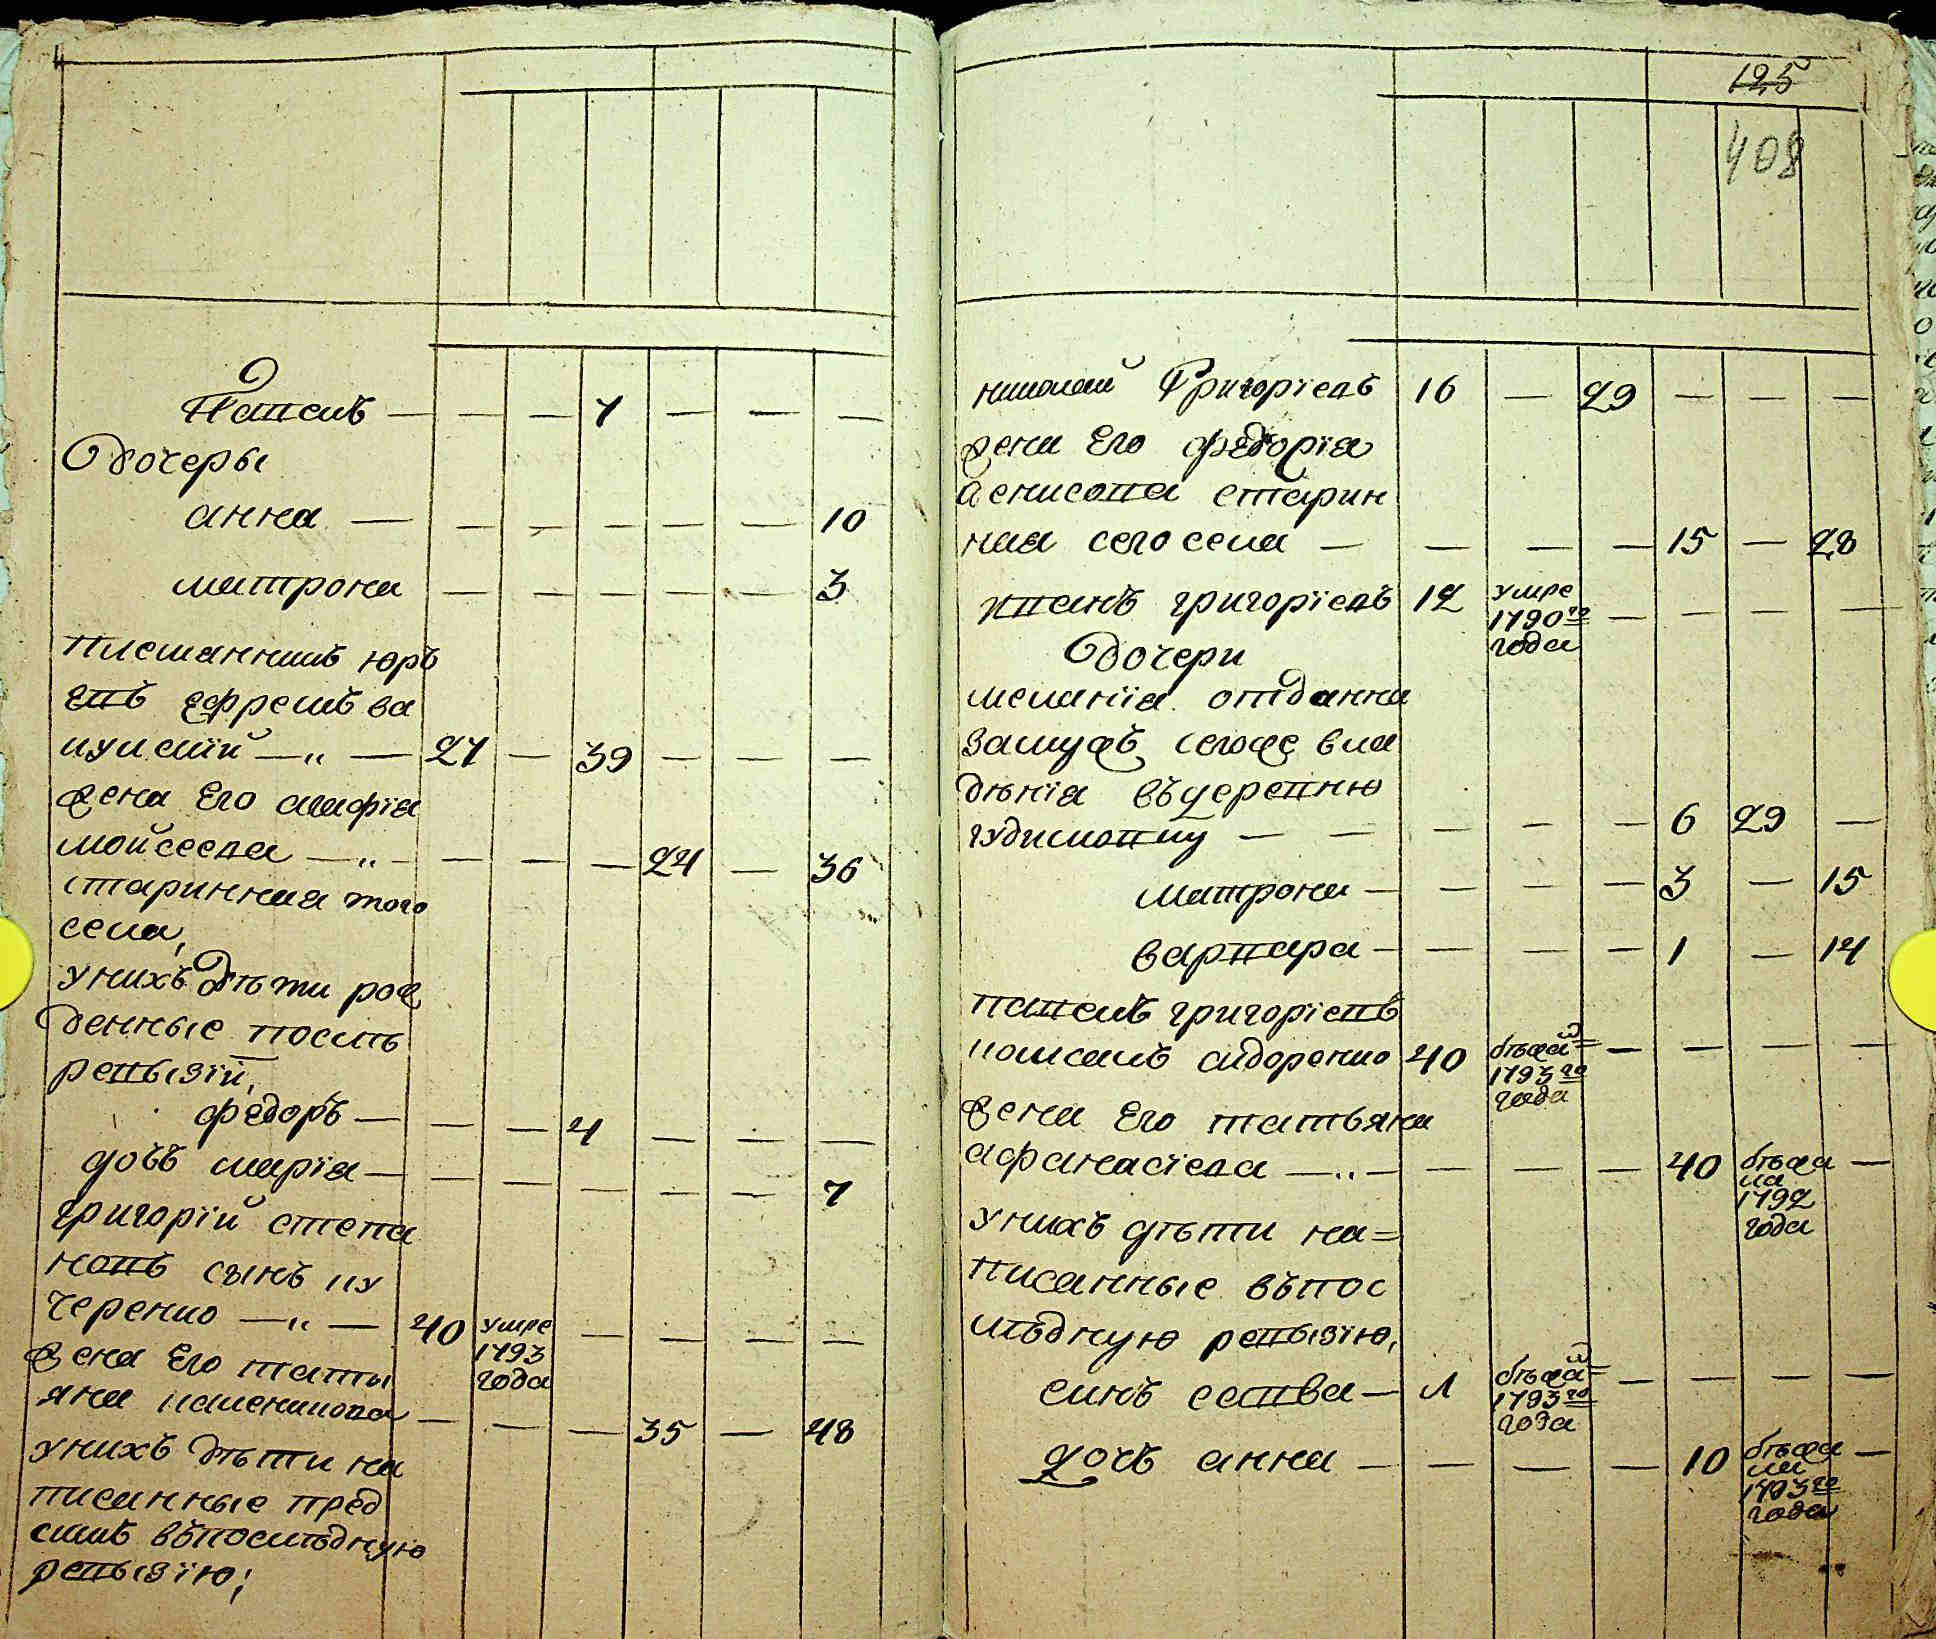 Павелъ — — — 7 — — —
дочеры
анна — — — — — — 10
матрона — — — — — 3
племянникъ юръ
евъ ефремъ ва
кулскій — „ — 27 — 39 — — —
жена Его агафія
мойсеева — „ — — — — 24 — 36
старинная того
села,
унихъ дѣти рож
денные послѣ
ревызіи,
федоръ — — — 4 — — —
дочъ марія — — — — — — 7
григорій степа
новъ сынъ ку
черенко — „ — 40 умре 1793 года — — — —
жена Его таты
яна пашенкова — — — 35 — 48
унихъ дѣти на
писанные пред
симъ въпослѣдную
ревызію;
125
408
николай Григоріевъ 16 — 29 — — —
жена Его федорія
денисова старин
ная сего села — — — — 15 — 28
иванъ григоріевъ 12 умре 1790го года — — — —
дочери
меланія отдана
замужъ сегоже вла
дѣнія въдеревню
гудимовку — — — — — 6 29 —
матрона — — — — 3 — 15
варвара — — — — 1 — 14
павелъ григоріевъ
коисамъ сидоренко 40 бѣжалъ 1793го года — — — —
жена Его татьяна
афанасіева — „ — — — — 40 бѣжала 1792 года —
унихъ дѣти на=
писанные въпос
лѣдную ревызію,
синъ савва — 1 бѣжалъ 1793го года — — — —
дочъ анна — — — — 10 бѣжала 1793го года —